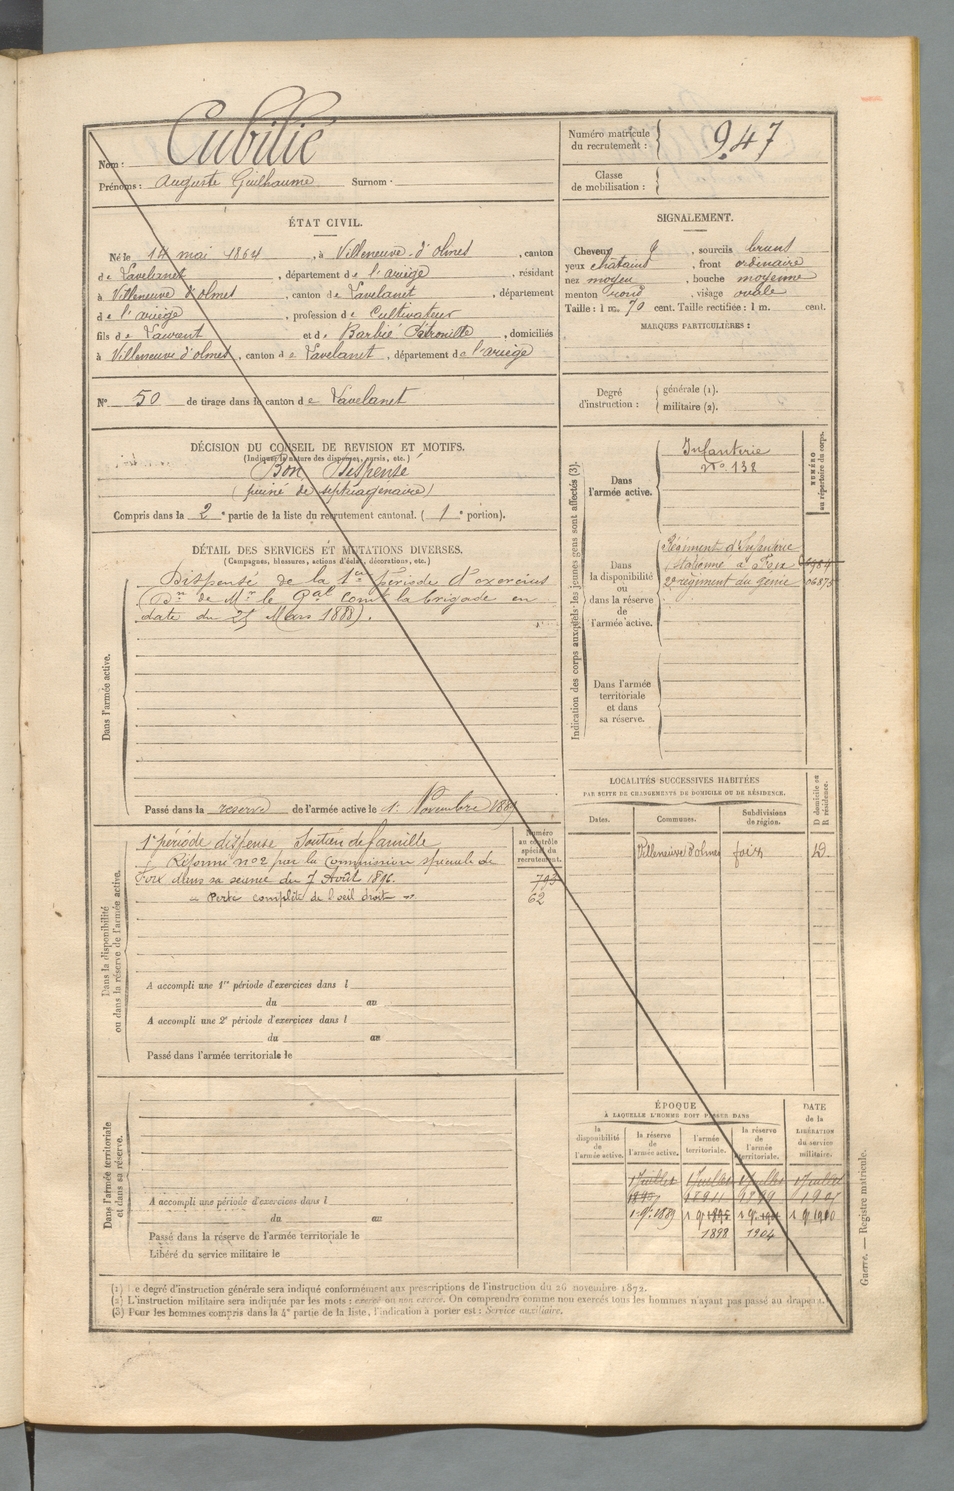 Nom : Cubilié
Prénoms : Auguste Guilhaume Surnom :
Numéro matricule du recrutement : 947
Classe de mobilisation :
ÉTAT CIVIL.
Né le 14 mai 1864, à Villeneuve d'olmes, canton
de Lavelanet, département de l'ariège, résidant
à Villeneuve d'olmes, canton de Lavelanet, département
de l'ariège, profession de Cultivateur
fils de Laurent et de Barbié Pétronille, domiciliés
à Villeneuve d'olmes, canton de Lavelanet, département de l'ariège
No 50 de tirage dans le canton de Lavelanet
SIGNALEMENT.
Cheveux , sourcils bruns
yeux châtains, front ordinaire
nez moyen, bouche moyenne
menton rond, visage ovale
Taille : 1 m. 70 cent. Taille rectifiée : 1 m. cent.
MARQUES PARTICULIÈRES :
Degré d'instruction : générale (1).
militaire (2).
DÉCISION DU CONSEIL DE REVISION ET MOTIFS.
(Indiquer la nature des dispenses, sursis, etc.)
Bon Dispensé
(puiné de septuagénaire)
Compris dans la 2e partie de la liste du recrutement cantonal. (1e portion).
DÉTAIL DES SERVICES ET MUTATIONS DIVERSES.
(Campagnes, blessures, actions d'éclat, décorations, etc.)
Dans l'armée active.
Dispensé de la 1ère période d'exercices
(Don de Mr le Gal Comt la brigade en
date du 25 Mars 1888).
Passé dans la reserve de l'armée active le 1er Novembre 1889
Numéro au contrôle spécial du recrutement.
Dans la disponibilité ou dans la réserve de l'armée active.
1e période dispense, Soutien de famille
Réformé no 2 par la Commission spéciale de
Foix dans sa séance du 7 Août 1896.
« Perte complète de l'oeil droit »
793
62
A accompli une 1re période d'exercices dans l
du au
A accompli une 2e période d'exercices dans l
du au
Passé dans l'armée territoriale le
Dans l'armée territoriale et dans sa réserve.
A accompli une période d'exercices dans l
du au
Passé dans la réserve de l'armée territoriale le
Libéré du service militaire le
Indication des corps auxquels les jeunes gens sont affectés (3).
NUMÉRO au répertoire du corps.
Dans l'armée active.
Infanterie
No. 138
Dans la disponibilité ou dans la réserve de l'armée active.
Régiment d'Infanterie
stationné à Foix
2e régiment du génie 06875
Dans l'armée territoriale et dans sa réserve.
LOCALITÉS SUCCESSIVES HABITÉES
PAR SUITE DE CHANGEMENTS DE DOMICILE OU DE RÉSIDENCE.
D domicile ou R résidence.
Dates. Communes. Subdivisions de région.
Villeneuve d'olmes foix D.
ÉPOQUE
À LAQUELLE L'HOMME DOIT PASSER DANS
DATE de la LIBÉRATION du service militaire.
la disponibilité de l'armée active. la réserve de l'armée active. l'armée territoriale. la réserve de l'armée territoriale.
1 Juillet 1 Juillet 1 Juillet 1 Juillet
1. 9bre 1889
1898 1904
(1) Le degré d'instruction générale sera indiqué conformément aux prescriptions de l'instruction du 26 novembre 1872.
(2) L'instruction militaire sera indiquée par les mots : exercé ou non exercé. On comprendra comme non exercés tous les hommes n'ayant pas passé au drapeau.
(3) Pour les hommes compris dans la 4e partie de la liste, l'indication à porter est : Service auxiliaire.
Guerre. — Registre matricule.